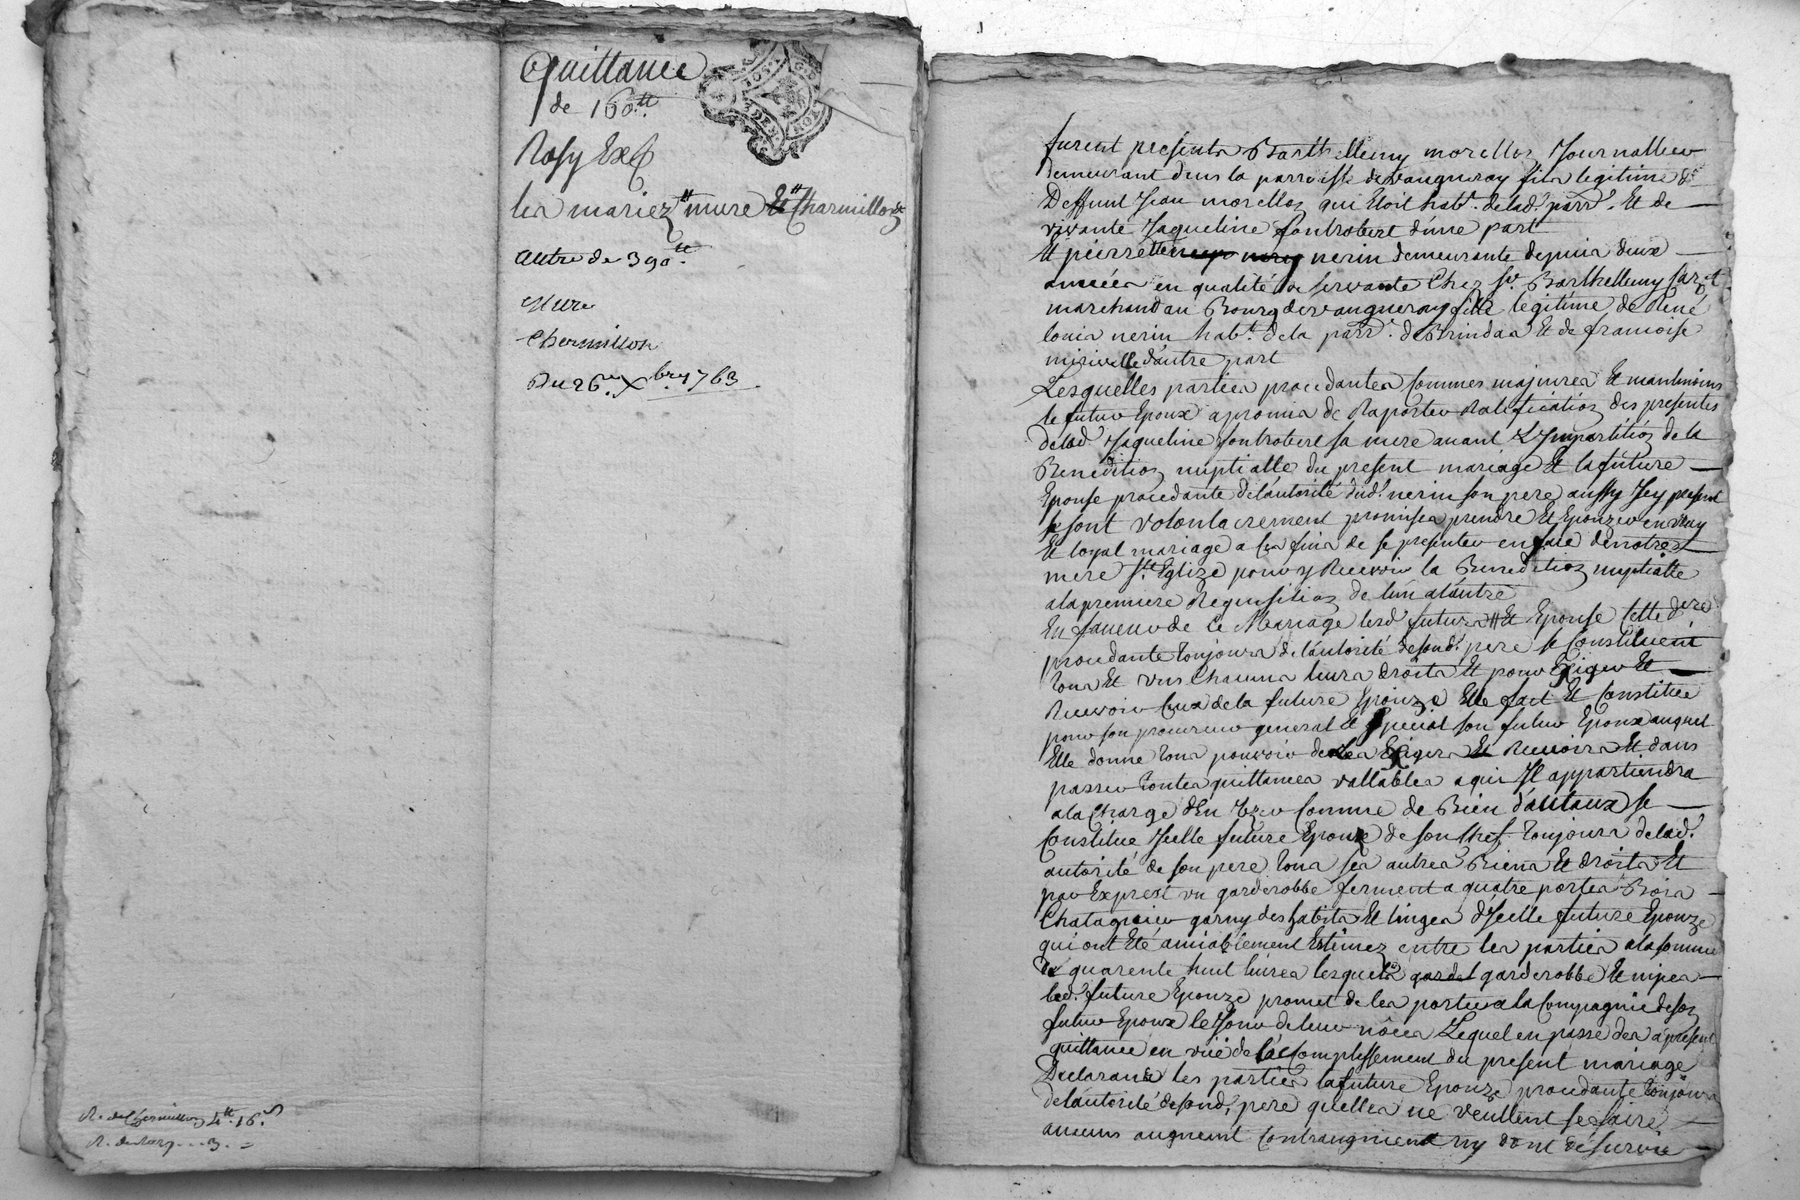 Quittance
de 160.tt
Rosy Exp
les mariez mure Et Charmillon &
autre de 390.tt
Mure
Chermillon
Du 26.e Xbre 1763.
R. de Chermillon 4.tt 16.s
R. de Rozy... 3. =
furent presents Barthellemy morellon Journallier
demeurant dans la parroisse de vaugneray fils legitime de
Deffunt Jean morellon qui Etoit habt. de lad. parr. Et de
vivante Jaqueline fontrobert d'une part
Et pierrette nerin demeurante depuis deux
années en qualité de servante Chez sr. Barthellemy
marchand au Bourg de vaugneray fille legitime de René
louis nerin habt. de la parr. de Brindas Et de francoise
d'autre part
Lesquelles parties procedantes Commes majeures Et mantmoins
le futur Epoux a promis de Raporter Ratification des presentes
de lad. Jaqueline fontrobert sa mere avant L'Impartition de la
Benediction nuptialle du present mariage Et la future
Epouse procedante de l'autorité dud. nerin son pere aussy Icy present
se sont volontairement promises prendre Et Epouzer en vray
Et loyal mariage a Ces fins de se presenter en face de notre
mere ste. Eglize pour y Recevoir la Benediction nuptialle
a la premiere Requisition de l'un a l'autre
En faveur de Ce Mariage lesd. futurs Et Epouse Cette dre
procedante toujours de l'autorité de sond. pere se Constituent
tous Et uns Chacuns leurs droits Et pour Exiger Et
Recevoir Ceux de la future Epouze Elle fait Et Constitue
pour son procureur general Et special son futur Epoux auquel
Elle donne tous pouvoir de les Exiger Et Recevoir Et d'ans
passer toutes quittances vallables a qui Il appartiendra
a la Charge d'En Uzer Comme de Bien d'autaux se
Constitue Icelle future Epouze de son Chef toujours de lad.
autorité de son pere tous ses autres Biens Et droits Et
par Exprest un garderobbe ferment a quatre portes Bois
Chatagnier garny des habits Et linges d'Icelle future Epouze
qui ont Eté amiablement Estimez entre les parties a la somme
de quarente huit livres lesquels garderobbe Et nipes
led. future Epouze promet de les porter a la Compagnie de son
futur Epoux le Jour de leur nôces Lequel en passe des a present
quittance en vüe de l'accomplissement du present mariage
Declarants les parties la future Epouze procedante toujours
de l'autorité de sond. pere quelles ne veullent se faire
aucuns augment Contraugment ny dont de survie